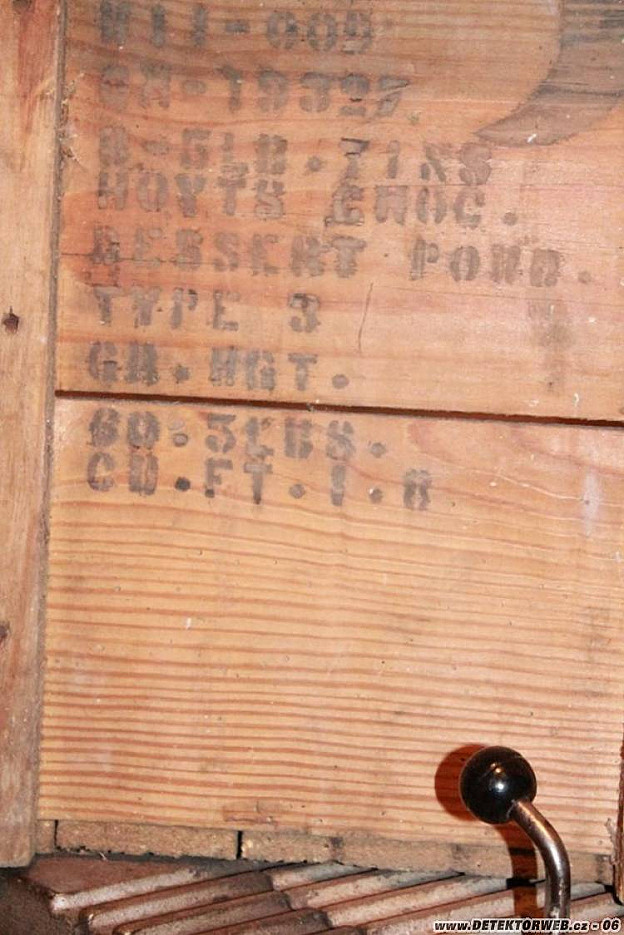 8-GLB.TINS
HOYTS CHOC.
DESSERT POWD.
TYPE 3
GR.WGT.
60.5LBS.
CU.FT.1.8
www.DETEKTORWEB.cz - 06